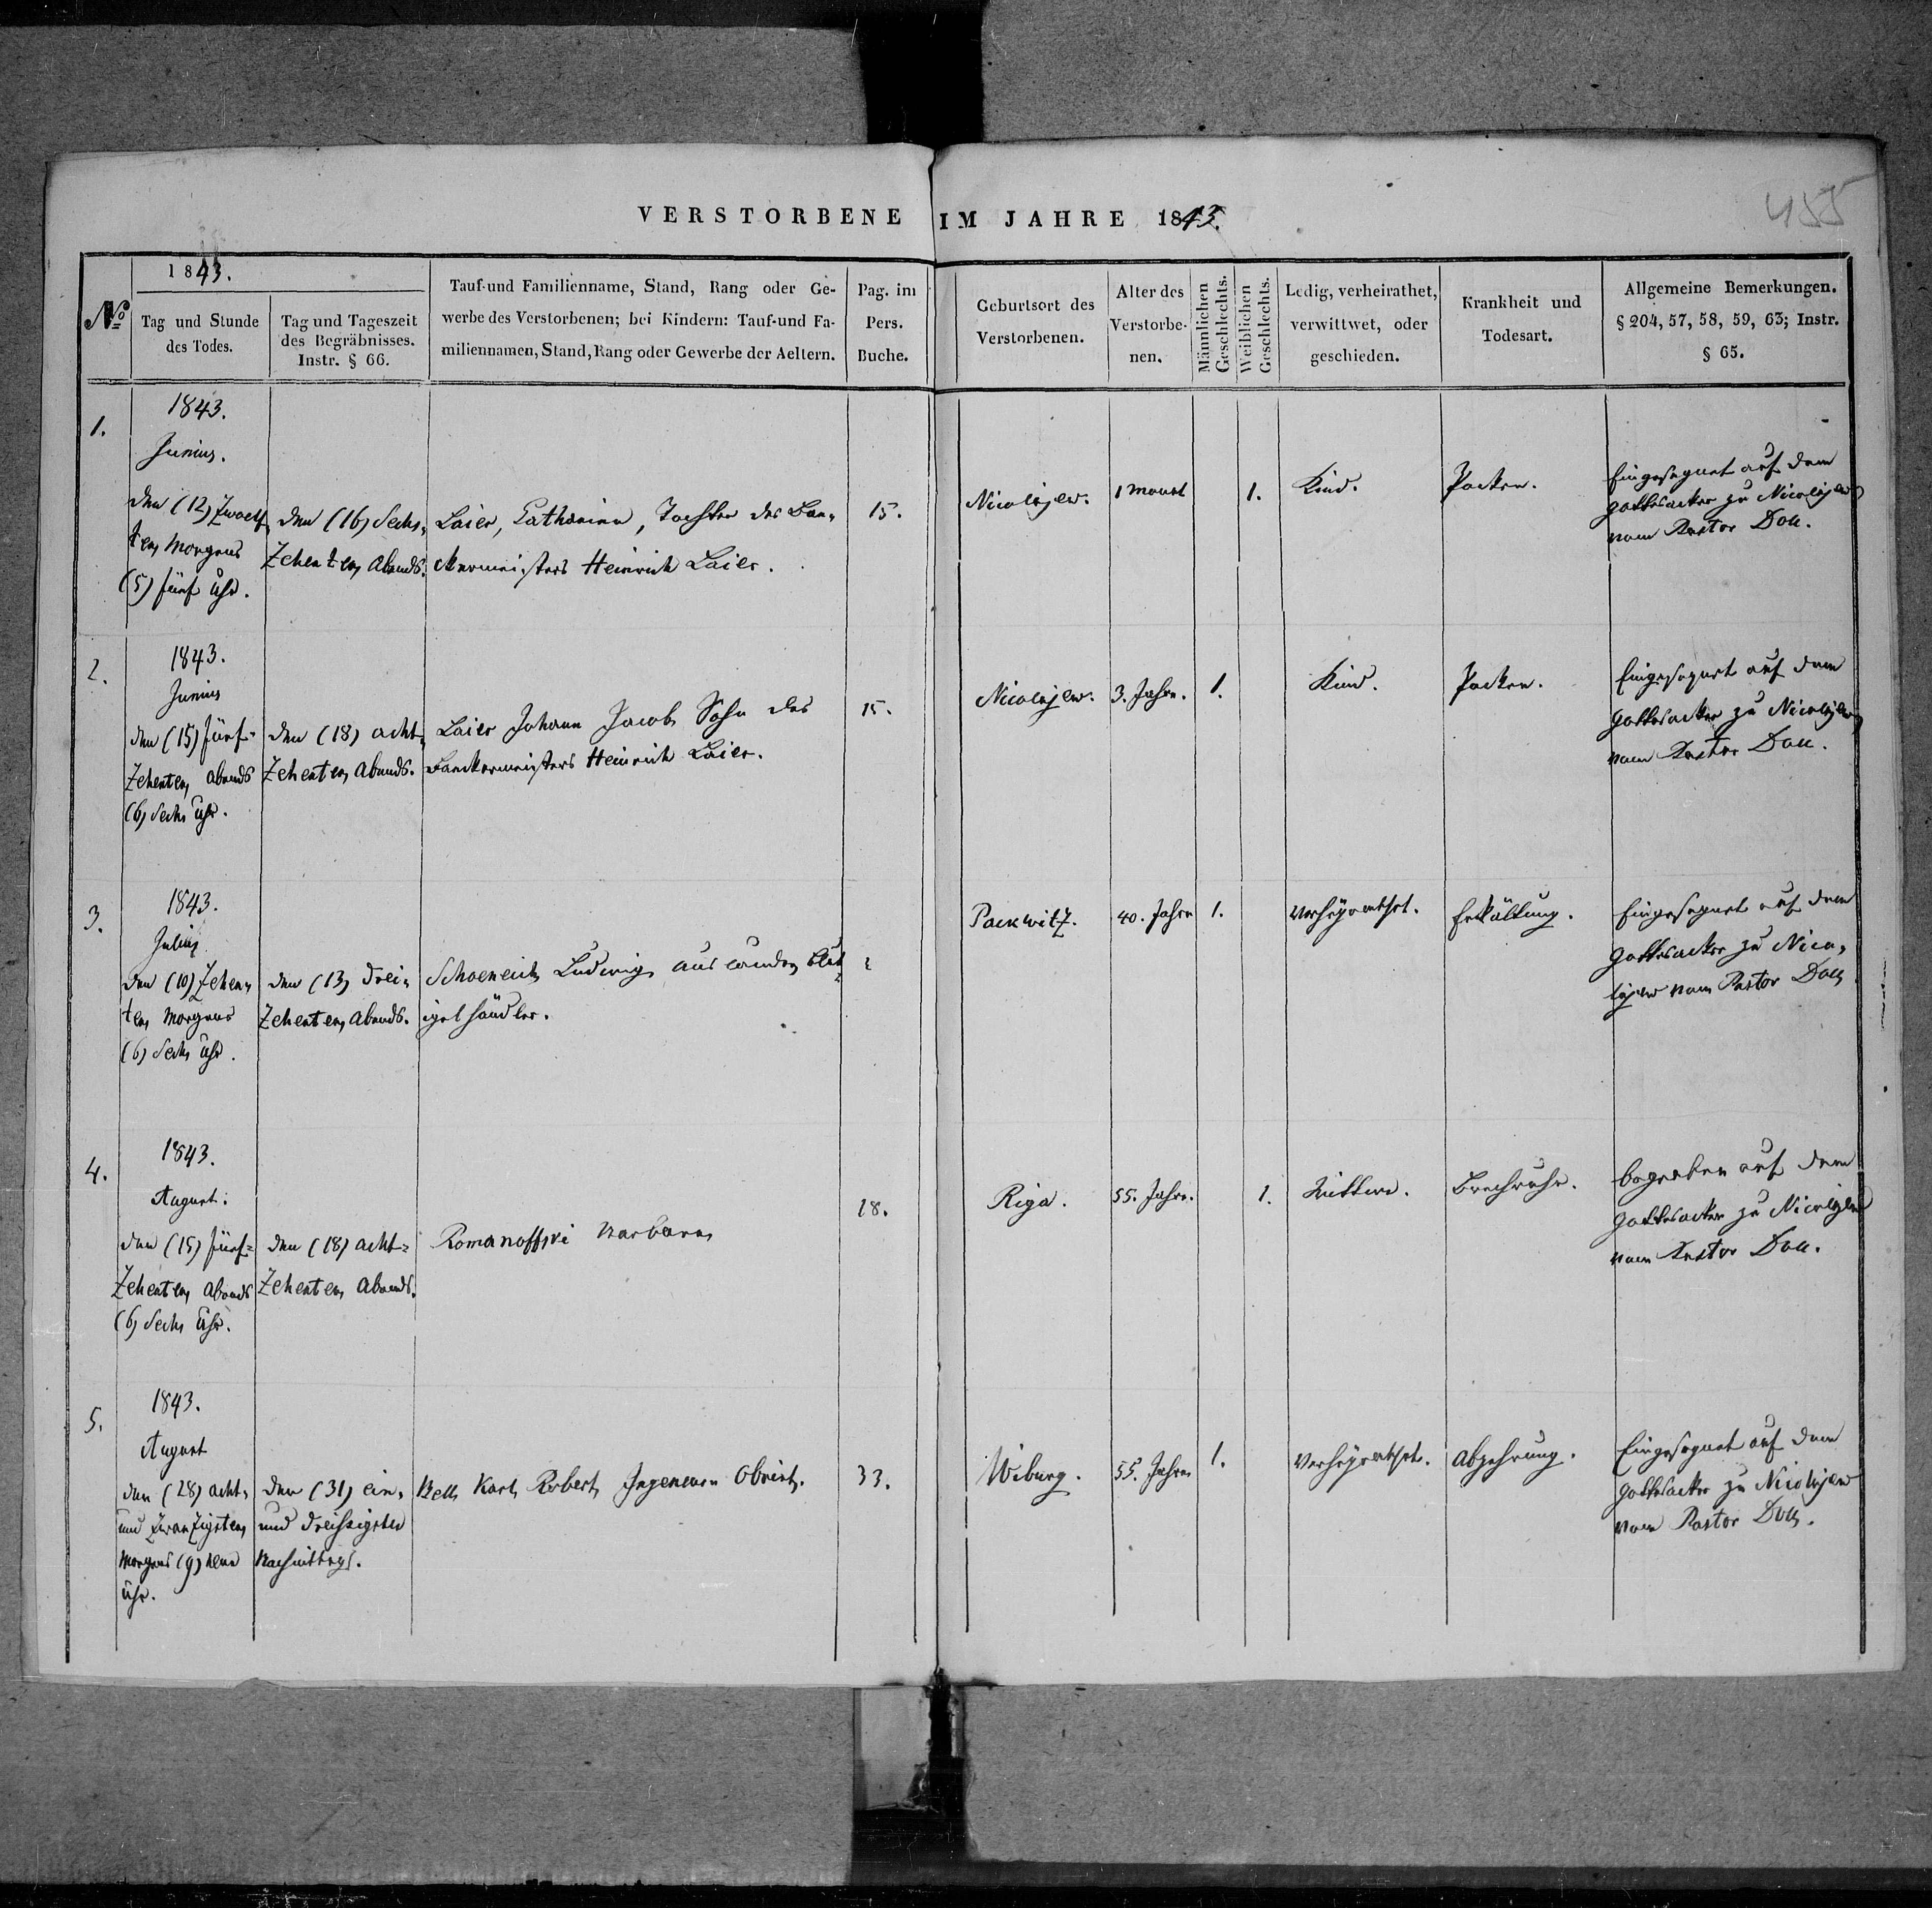 VERSTORBENE IM JAHRE 1843.
455
No
1843.
Tag und Stunde
des Todes.
Tag und Tageszeit
des Begräbnisses.
Instr. § 66.
Tauf-und Familienname, Stand, Rang oder Ge-
werbe des Verstorbenen; bei Kindern: Tauf-und Fa-
miliennamen, Stand, Rang oder Gewerbe der Aeltern.
Pag. im
Pers.
Buche.
Geburtsort des
Verstorbenen.
Alter des
Verstorbe-
nen.
Männlichen
Geschlechts.
Weiblichen
Geschlechts.
Ledig, verheirathet,
verwittwet, oder
geschieden.
Krankheit und
Todesart.
Allgemeine Bemerkungen.
§ 204, 57, 58, 59, 63; Instr.
§ 65.
1.
1843.
Junius.
den (12) Zwoelf
ten Morgens
(5) fünf Uhr.
den (16) Sechs,
Zehenten Abends.
Laier, Catharina, Tochter des Ban,
ckermeisters Heinrich Laier.
15.
Nicolajew.
1 Monat
1.
Kind.
Pocken.
Eingesegnet auf dem
Gottesacker zu Nicolajew
vom Pastor Doll.
2.
1843.
Junius
den (15) fünf-
Zehenten Abends
(6) Sechs Uhr.
den (18) acht,
Zehenten Abends.
Laier Johann Jacob Sohn des
Banckermeisters Heinrich Laier.
15.
Nicolajew.
3. Jahre.
1.
Kind.
Pocken.
Eingesegnet auf dem
Gottesacker zu Nicolajew
vom Pastor Doll.
3.
1843.
Julius
den (10) Zehen,
ten Morgens
(6) Sechs Uhr.
den (13) drei,
Zehenten Abends.
Schoeneich Ludwig Blut
igelhändler.
Packwitz.
40. Jahre
1.
Verheyrathet.
Erkältung.
Eingesegnet auf dem
Gottesacker zu Nico,
lajew vom Pastor Doll
4.
1843.
August.
den (15) fünf=
Zehenten Abends
(6) Sechs Uhr.
den (18) acht=
Zehenten Abends.
Romanoffski Barbara
18.
Riga.
55. Jahre.
1.
Wittwe.
Brechruhr.
begraben auf dem
Gottesacker zu Nicolajew
vom Pastor Doll.
5.
1843.
August
den (28) acht,
und Zwanzigsten
Morgens (9) neun
Uhr.
den (31) ein,
und dreissigsten
Nachmittags.
Bell Karl Robert Ingenieur Obrist.
33.
Wiburg.
55. Jahre
1.
Verheyrathet.
Abzehrung.
Eingesegnet auf dem
Gottesacker zu Nicolajew
vom Pastor Doll.